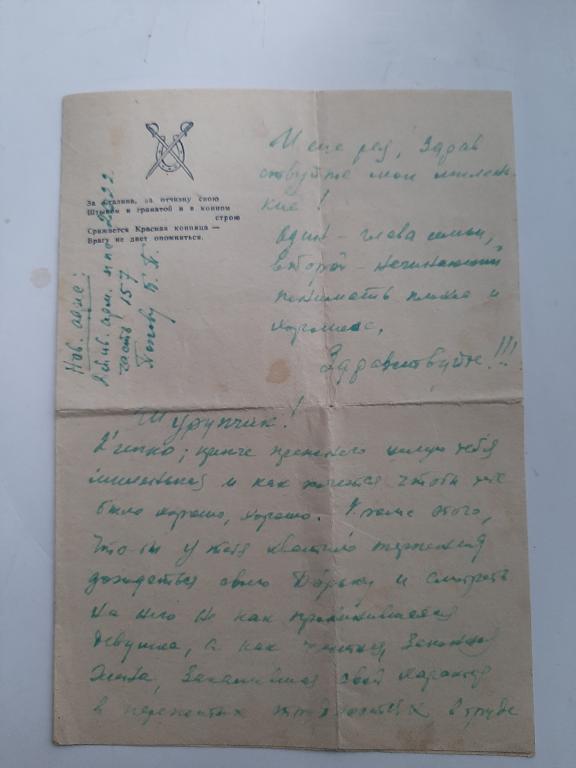 За Сталина, за отчизну свою
Штыком и гранатой и в конном
строю
Сражается Красная конница —
Врагу не дает опомниться.
Нов. адрес:
адм.
часть 157
Попову Б. П.
И еще раз, Здрав
ствуйте мои милень
кие!
Один – глава семьи,
Второй – начинающий
понимать плохое и
хорошее.
Здравствуйте!!!
Шурупчик!
Крепко, крепче прежнего целую тебя
миленькая и как хочется чтобы все
было хорошо, хорошо. Кроме этого,
Что-бы у тебя хватило терпения
дождаться свою Борьку и смотреть
на него не как провинившаяся
девушка, а как законная
жена, Закалившая свой характер
в трудно